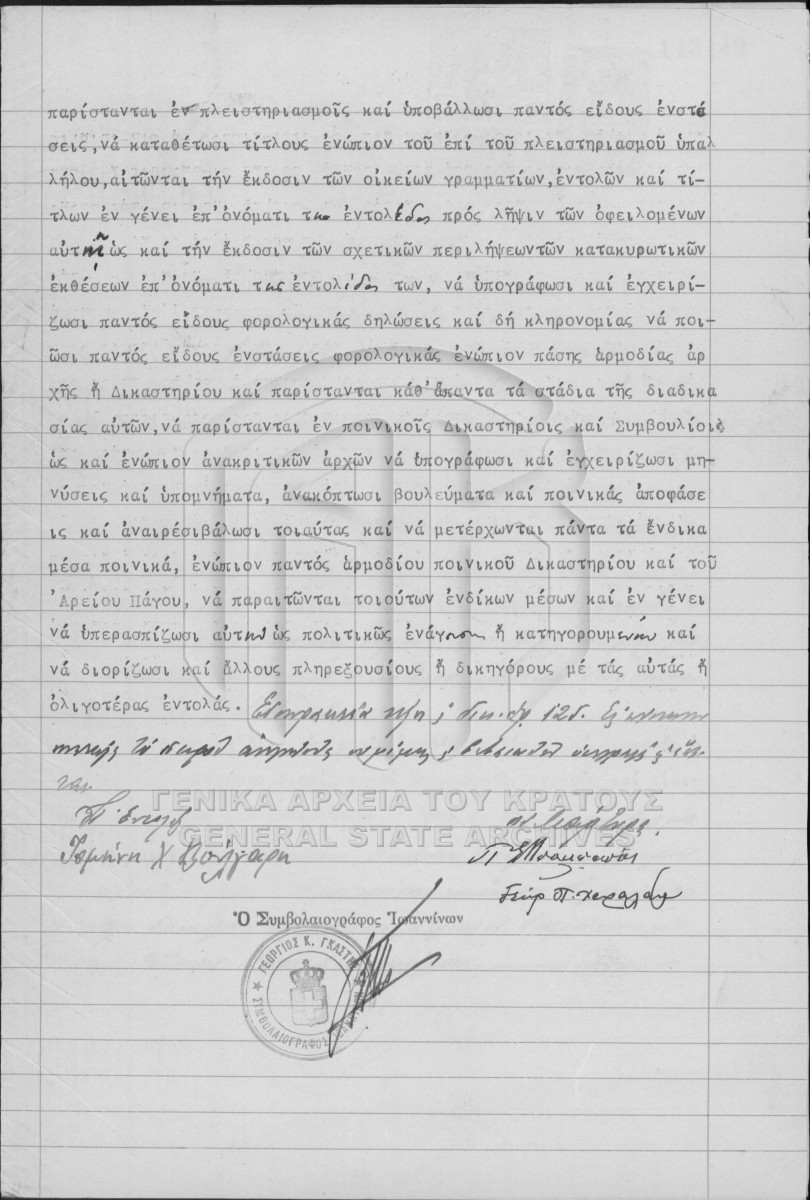 παρίστανται ἐν πλειστηριασμοῖς καί ὑποβάλλωσι παντός εἴδους ἐνστά
σεις, νά καταθέτωσι τίτλους ἐνώπιον τοῦ ἐπί τοῦ πλειστηριασμοῦ ὑπαλ
λήλου, αἰτῶνται τήν ἔκδοσιν τῶν οἰκείων γραμματίων, ἐντολῶν καί τί-
τλων ἐν γένει ἐπ' ὀνόματι της ἐντολέδος πρός λῆψιν τῶν ὀφειλομένων
αὐτῆ ὡς καί τήν ἔκδοσιν τῶν σχετικῶν περιλήψεωντῶν κατακυρωτικῶν
ἐκθέσεων ἐπ' ὀνόματι της ἐντολίδος των, νά ὑπογράφωσι καί ἐγχειρί-
ζωσι παντός εἴδους φορολογικάς δηλώσεις καί δή κληρονομίας νά ποι-
ῶσι παντός εἴδους ἐνστάσεις φορολογικάς ἐνώπιον πάσης ἁρμοδίας ἀρ
χῆς ἤ Δικαστηρίου καί παρίστανται κάθ' ἅπαντα τά στάδια τῆς διαδικα
σίας αὐτῶν, νά παρίστανται ἐν ποινικοῖς Δικαστηρίοις καί Συμβουλίοις
ὡς καί ἐνώπιον ἀνακριτικῶν ἀρχῶν νά ὑπογράφωσι καί ἐγχειρίζωσι μη-
νύσεις καί ὑπομνήματα, ἀνακόπτωσι βουλεύματα καί ποινικάς ἀποφάσε
ις καί ἀναιρέσιβάλωσι τοιαύτας καί νά μετέρχωνται πάντα τά ἔνδικα
μέσα ποινικά, ἐνώπιον παντός ἁρμοδίου ποινικοῦ Δικαστηρίου καί τοῦ
Ἀρείου Πάγου, νά παραιτῶνται τοιούτων ἐνδίκων μέσων καί ἐν γένει
νά ὑπερασπίζωσι αὐτήν ὡς πολιτικῶς ἐνάγουσαν ἤ κατηγορουμένην καί
νά διορίζωσι καί ἄλλους πληρεξουσίους ἤ δικηγόρους μέ τάς αὐτάς ἤ
ὀλιγοτέρας ἐντολάς.
ΓΕΝΙΚΑ ΑΡΧΕΙΑ ΤΟΥ ΚΡΑΤΟΥΣ
GENERAL STATE ARCHIVES
Ὁ Συμβολαιογράφος Ἰωαννίνων
ΓΕΩΡΓΙΟΣ Κ. ΓΚΑΣΤΗΣ
ΣΥΜΒΟΛΑΙΟΓΡΑΦΟΣ